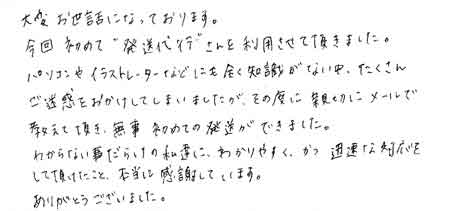 大変お世話になっております。
今回初めて"発送代行"さんを利用させて頂きました。
パソコンやイラストレーターなどにも全く知識がない中、たくさん
ご迷惑をおかけしてしまいましたが、その度に親切にメールで
教えて頂き、無事初めての発送ができました。
わからない事だらけの私達に、わかりやすく、かつ迅速な対応を
して頂けたこと、本当に感謝しています。
ありがとうございました。